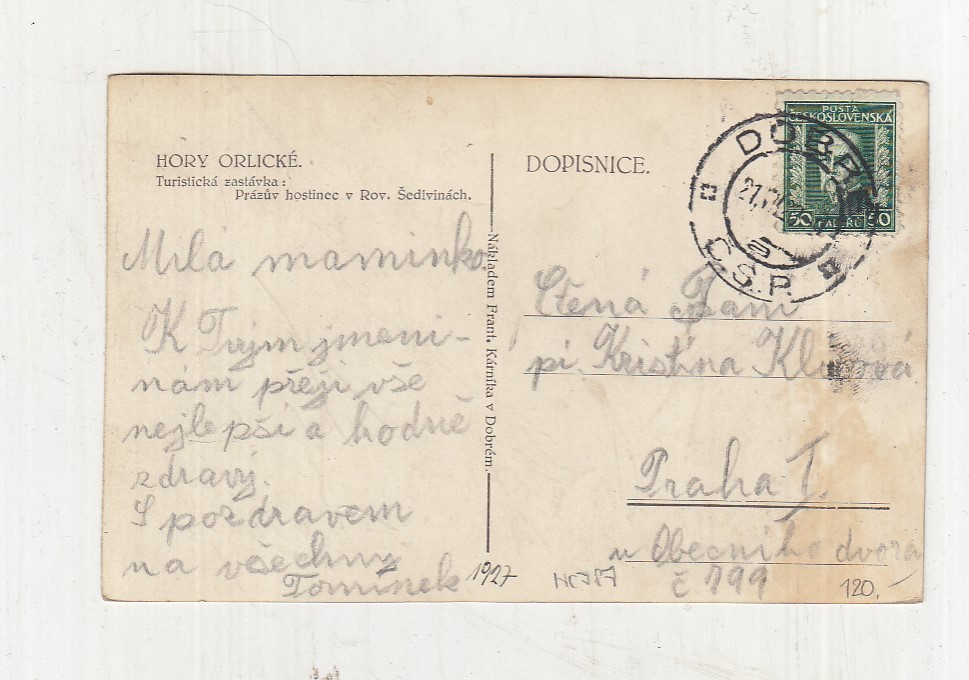 HORY ORLICKÉ.
Turistická zastávka:
Prázův hostinec v Rov. Šedivinách.
Milá maminko.
K Tvým jmeni-
nám přeji vše
nejlepší a hodně
zdraví.
S pozdravem
na všechny
Tomínek
1927
Nákladem Frant. Kárníka v Dobrém.
DOPISNICE.
POŠTA
ČESKOSLOVENSKÁ
50 HALÉŘŮ 50
DOBRÉ
Č.S.P.
Ctěná Paní
pí. Kristina
Praha I.
u Obecního dvora
č 799
120.